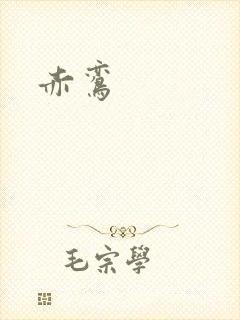 赤鸾
毛宗學